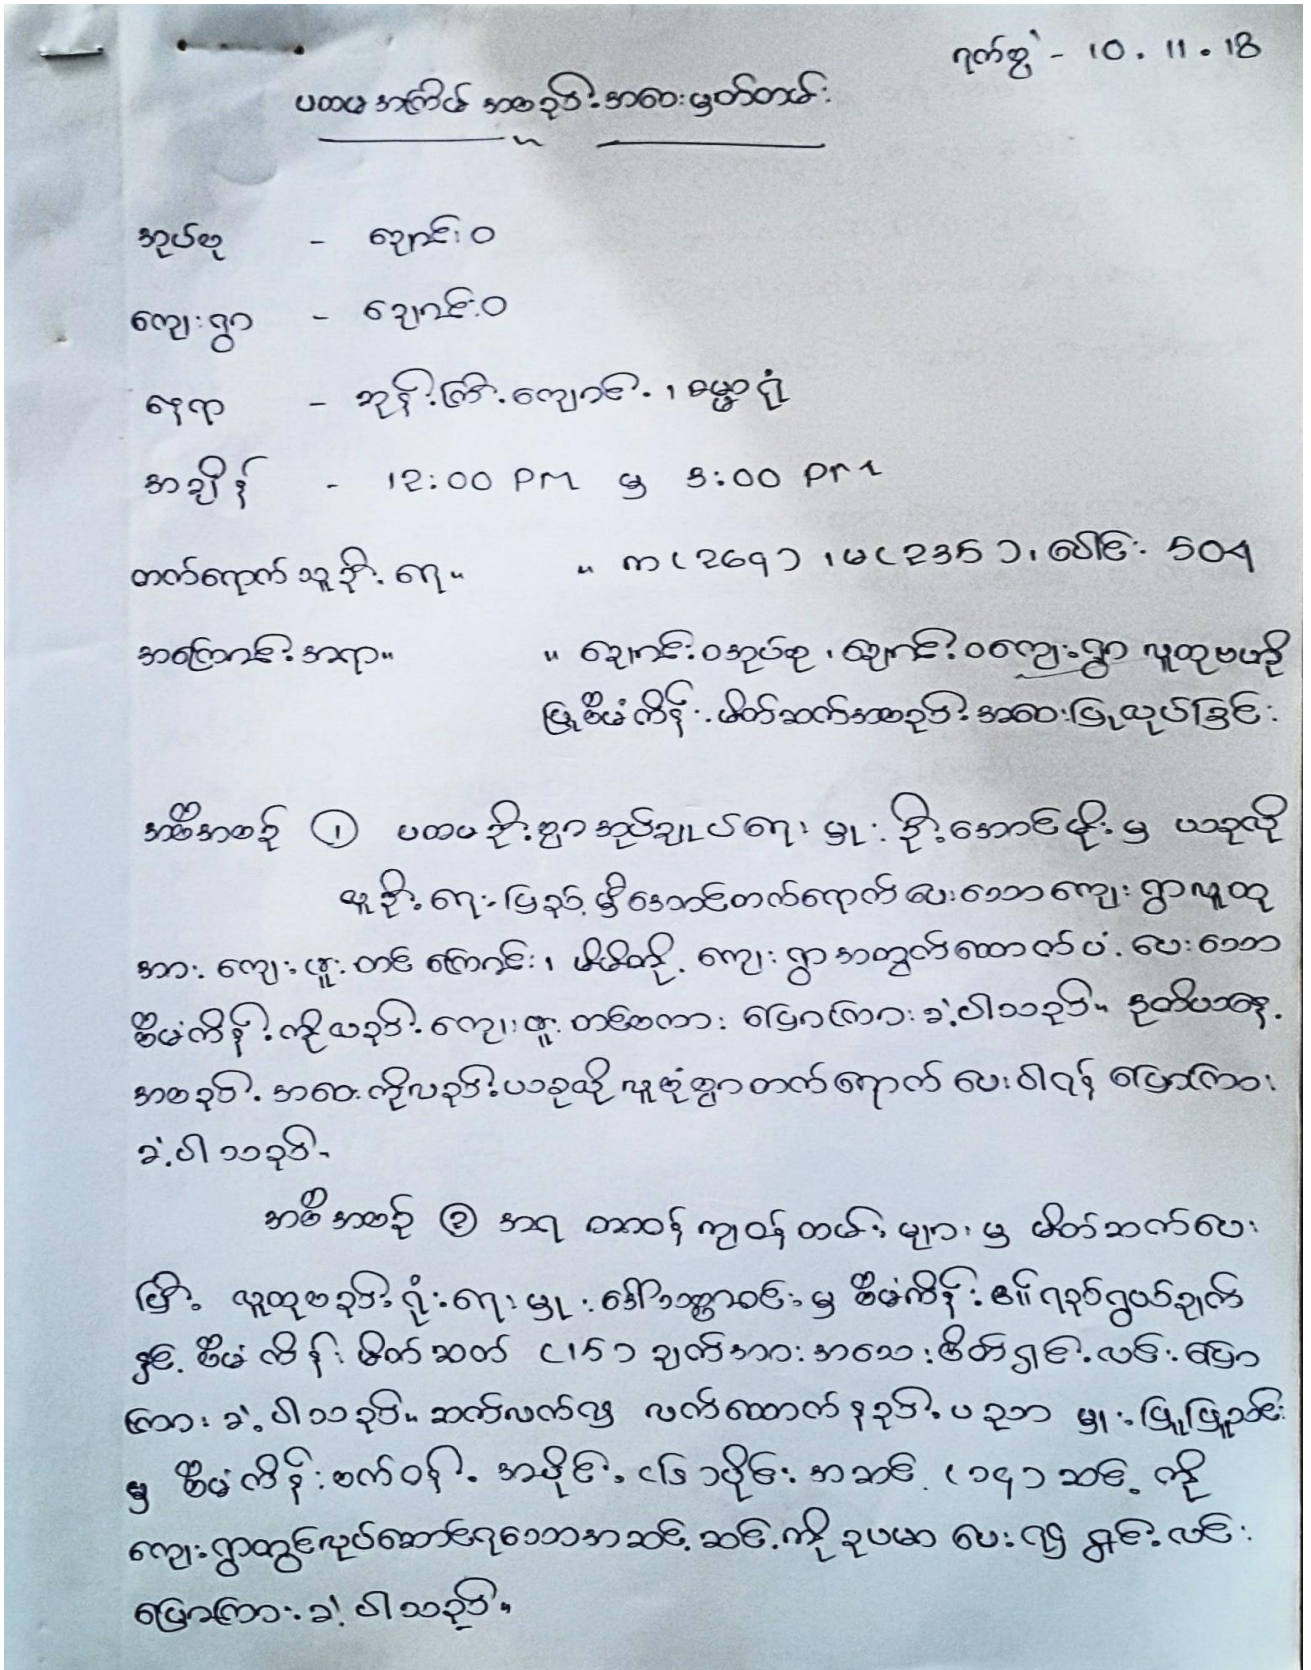 ရက်စွဲ - 10.11.18
ပထမအကြိမ် အစည်းအဝေးမှတ်တမ်း
အုပ်စု - ချောင်းဝ
ကျေးရွာ - ချောင်းဝ
နေရာ - ဘုန်းကြီးကျောင်း၊ ဓမ္မာရုံ
အချိန် - 12:00 PM မှ 3:00 PM
တက်ရောက်သူဦးရေ။ ။ ကျ (269)၊ မ (235)၊ ပေါင်း 504
အကြောင်းအရာ။ ။ ချောင်းဝအုပ်စု၊ ချောင်းဝကျေးရွာ လူထုဗဟိုပြု
စီမံကိန်း မိတ်ဆက်အစည်းအဝေးပြုလုပ်ခြင်း
အစီအစဉ် ① ပထမဦးစွာ အုပ်ချုပ်ရေးမှူး ဦးအောင်မိုးမှ ယခုလို
လူဦးရေပြည့်မှီအောင်တက်ရောက်ပေးသောကျေးရွာလူထု
အား ကျေးဇူးတင်ကြောင်း၊ မိမိတို့ ကျေးရွာအတွက်ထောက်ပံ့ပေးသော
စီမံကိန်းကိုလည်းကျေးဇူးတင်စကား ပြောကြားခဲ့ပါသည်။ ဒုတိယနေ့
အစည်းအဝေးကိုလည်းယခုလိုလူစုံစွာတက်ရောက်ပေးပါရန် ပြောကြား
ခဲ့ပါသည်။
အစီအစဉ် ② အရ တာဝန်ကျဝန်ထမ်းများမှ မိတ်ဆက်ပေး
ပြီး လူထုစည်းရုံးရေးမှူး ဒေါ်သဏ္ဍာဝင်းမှ စီမံကိန်း၏ရည်ရွယ်ချက်
နှင့် စီမံကိန်းမိတ်ဆက် (15) ချက်အား အသေးစိတ်ရှင်းလင်းပြော
ကြားခဲ့ပါသည်။ ဆက်လက်၍ လက်ထောက်နည်းပညာမှူး ဖြူဖြူညှင်း
မှ စီမံကိန်းစက်ဝန်း အပိုင်း (၆) ပိုင်း အဆင့် (၁၄) ဆင့်ကို
ကျေးရွာတွင်လုပ်ဆောင်ရသောအဆင့်ဆင့်ကို ဥပမာပေး၍ ရှင်းလင်း
ပြောကြားခဲ့ပါသည်။